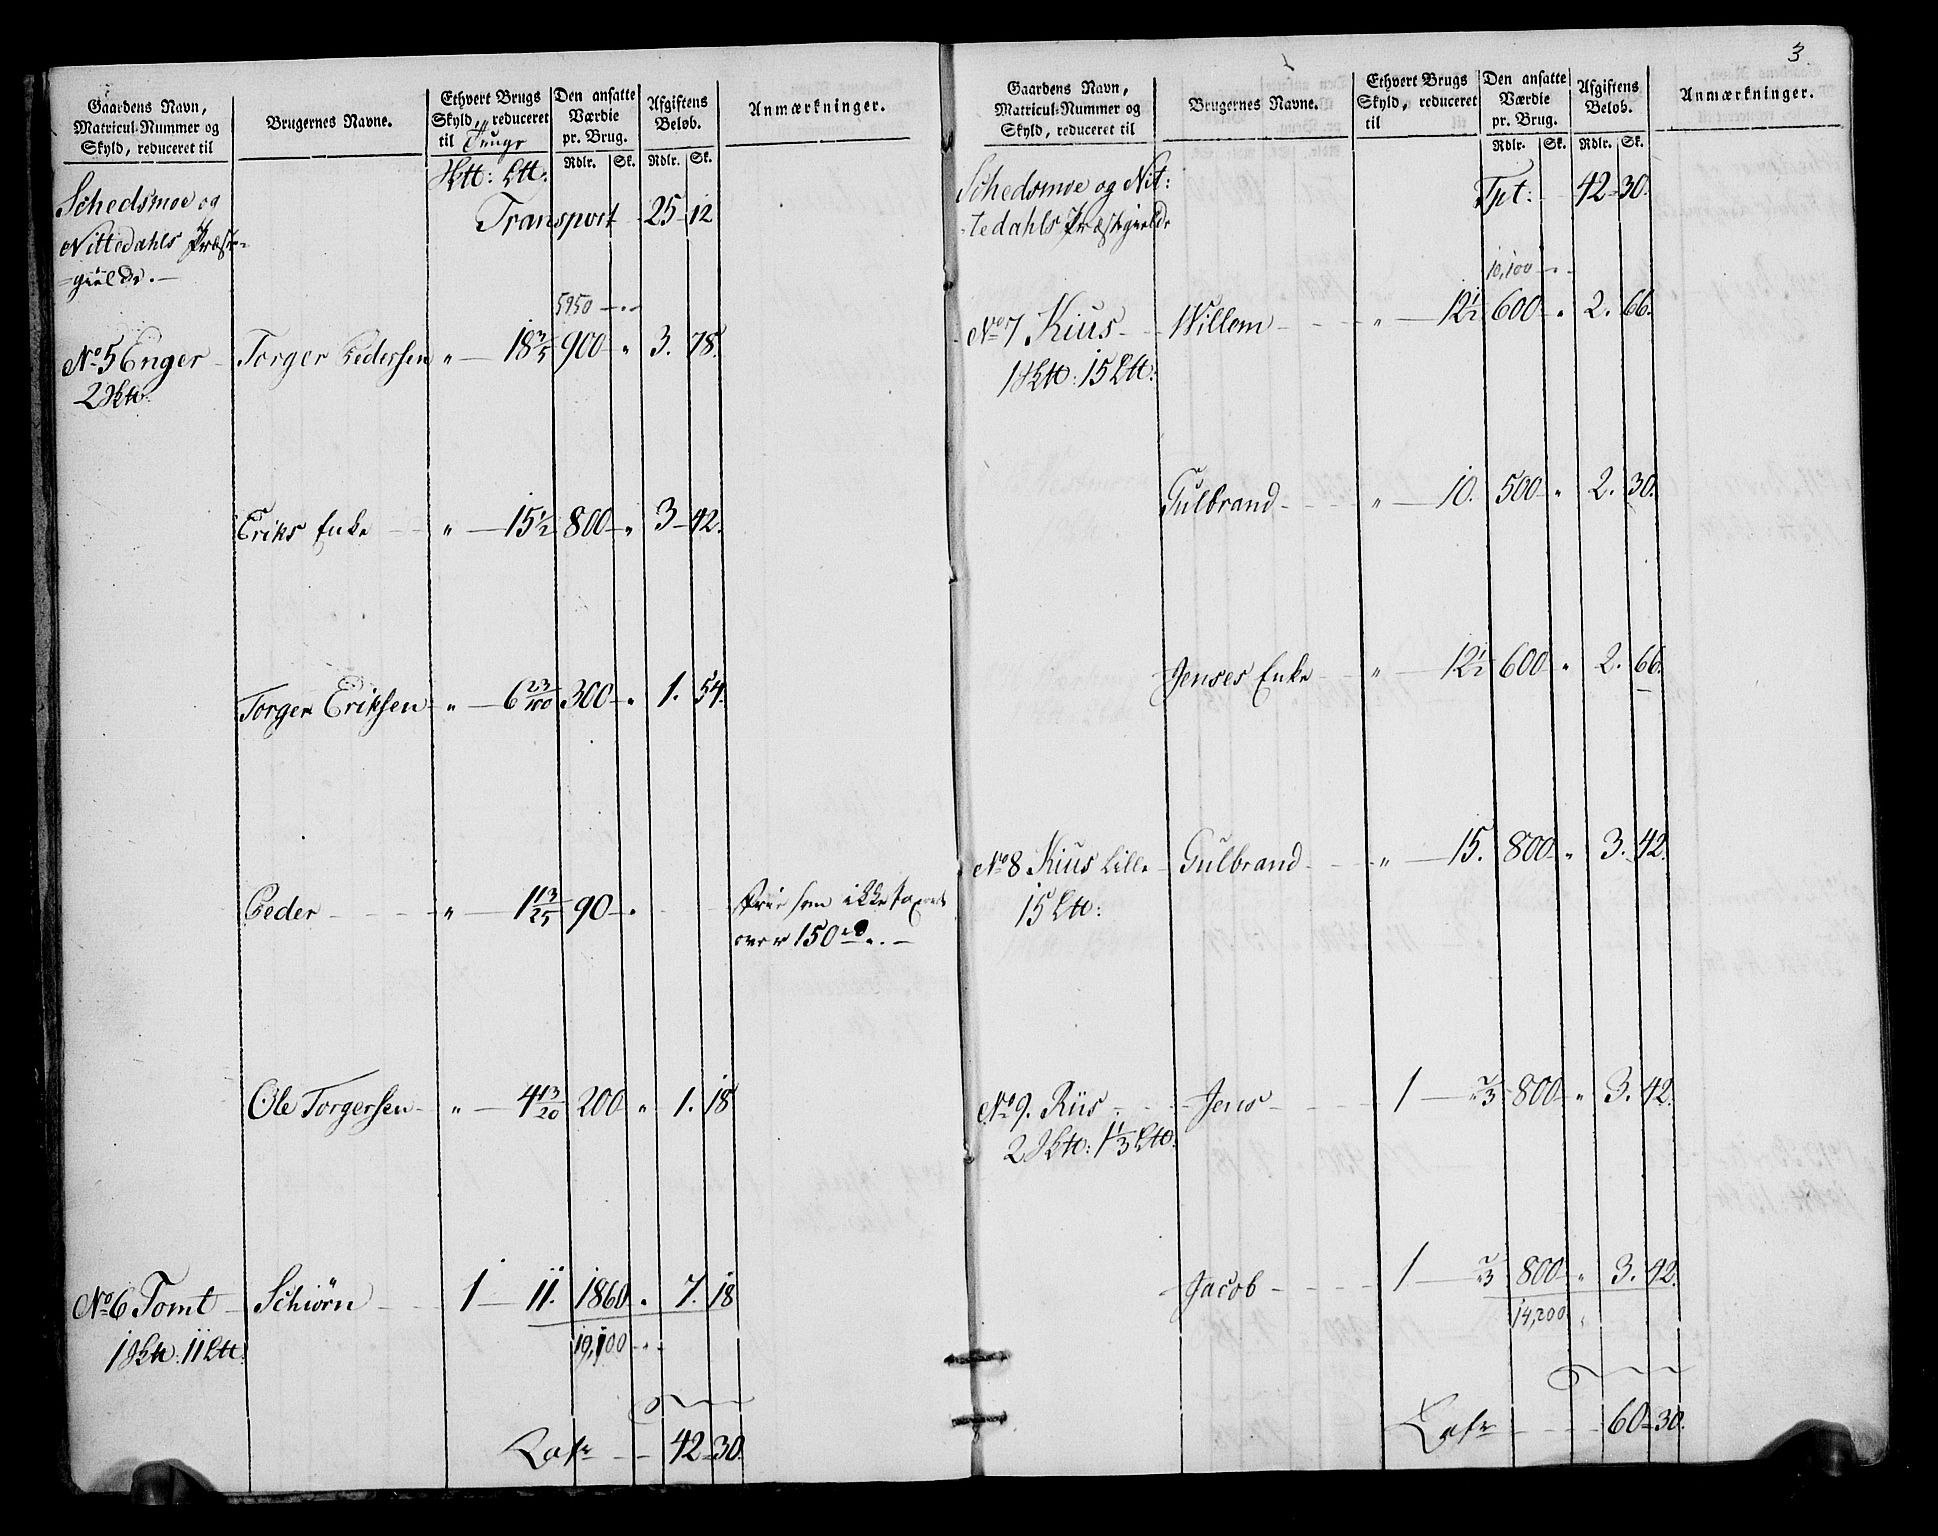 Gaardens Navn,
Matricul-Nummer og
Skyld, reduceret til
Brugernes Navne.
Ethvert Brugs
Skyld, reduceret
til Tunge
Den ansatte
Værdie
pr. Brug.
Rdlr. Sk.
Afgiftens
Beløb.
Rdlr. Sk.
Anmærkninger.
Schedsmoe og
Nittedahls Præste-
-gield.
Transport 25 - 12
5950
No 5 Enger Torger Pedersen " 18 3/5 900 " 3. 78.
Eriks Enke " 15 1/2 800 " 3 - 42.
Torger Eriksen " 6 23/100 300 " 1. 54.
Peder " 1 13/25 90 "
over 150 rd.
Ole Torgersen " 4 13/20 200 " 1. 18
No 6 Tomt Schiørn 1 11. 1860 " 7. 18
19,100
Lat. 42 - 30.
3.
Gaardens Navn,
Matricul-Nummer og
Skyld, reduceret til
Brugernes Navne.
Ethvert Brugs
Skyld, reduceret
til
Den ansatte
Værdie
pr. Brug.
Rdlr. Sk.
Afgiftens
Beløb.
Rdlr. Sk.
Anmærkninger.
Schedsmoe og Nit:
-tedahls Præstegield
Tpt: 42 - 30.
10,100
No 7 Kius Willem " 12 1/2 600 " 2. 66.
Gulbrand " 10. 500 " 2. 30.
Jenses Enke " 12 1/2 600 " 2. 66.
No 8 Kius Lille Gulbrand " 15. 800 " 3. 42.
No 9. Riis Jens 1 2/3 800 " 3. 42.
Jacob 1 2/3 800 " 3. 42.
14,200
Lat. 60 - 30.